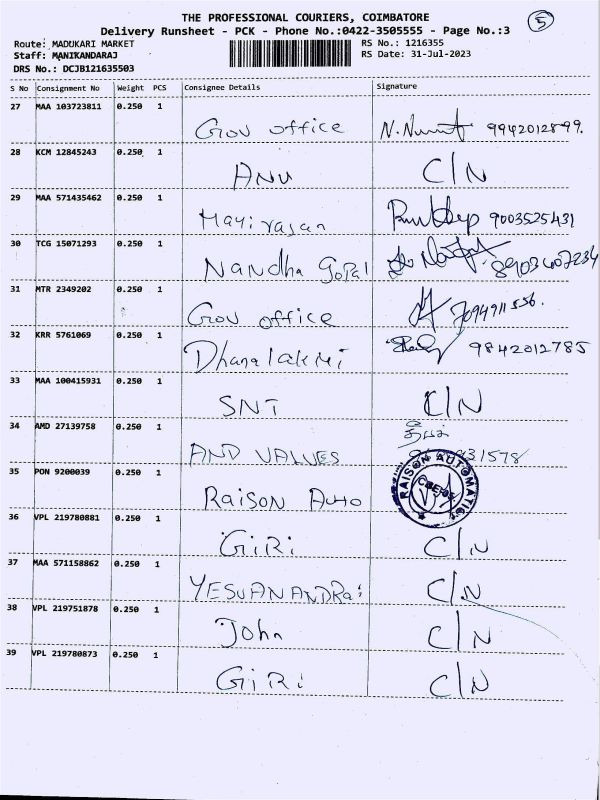 THE PROFESSIONAL COURIERS, COIMBATORE
5
Delivery Runsheet - PCK - Phone No.:0422-3505555 - Page No.:3
Route: MADUKARI MARKET RS No.: 1216355
Staff: MANIKANDARAJ RS Date: 31-Jul-2023
DRS No.: DCJB121635503
S No Consignment No Weight PCS Consignee Details Signature
27 MAA 103723811 0.250 1
Gov office 9942012899.
28 KCM 12845243 0.250 1
ANU C/N
29 MAA 571435462 0.250 1
Mayirasan 9003525431
30 TCG 15071293 0.250 1
Nandha Gopal 8903407234
31 MTR 2349202 0.250 1
Gov office 7094911556.
32 KRR 5761069 0.250 1
Dhanalakmi 9842012785
33 MAA 100415931 0.250 1
SNT C/N
34 AMD 27139758 0.250 1
AND VALVES
35 PON 9200039 0.250 1
Raison Auto RAISON AUTOMATION
36 VPL 219780881 0.250 1
GiRi C/N
37 MAA 571158862 0.250 1
YESUANANDRai C/N
38 VPL 219751878 0.250 1
John C/N
39 VPL 219780873 0.250 1
GiRi C/N